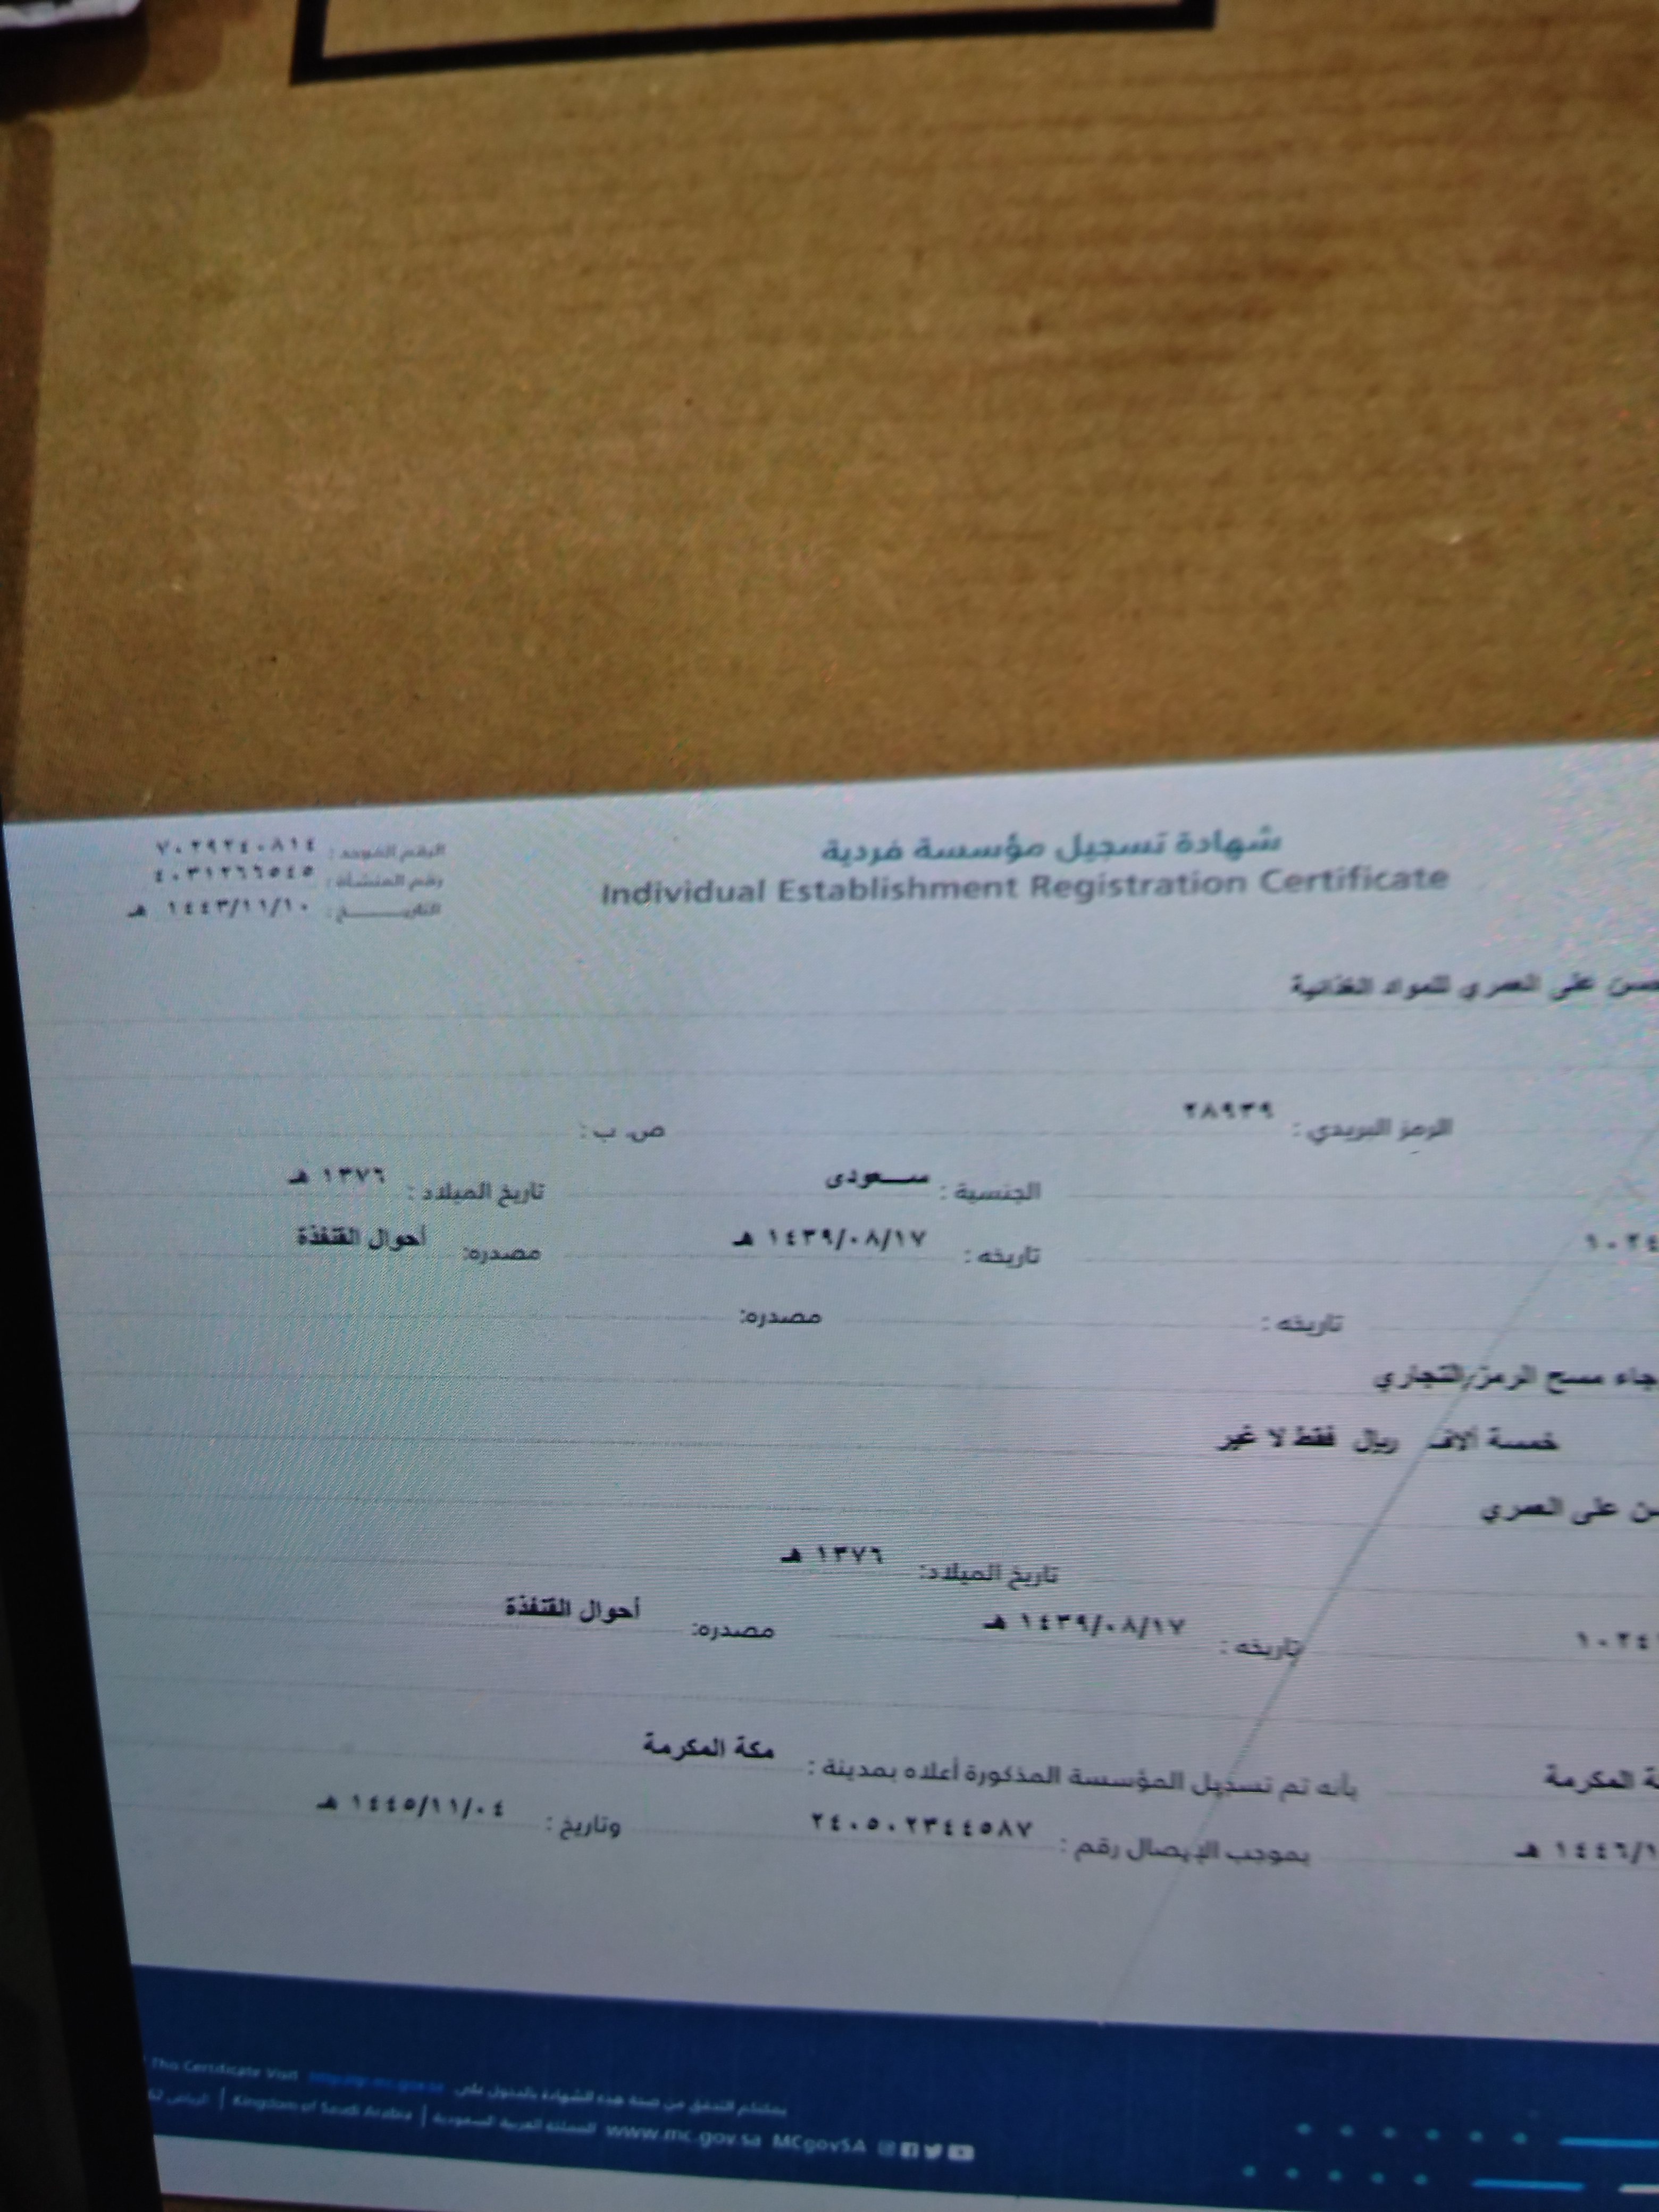 شهادة تسجيل مؤسسة فردية
Individual Establishment Registration Certificate
الرقم الموحد : ٧٠٢٩٢٤٠٨١٤
رقم المنشأة : ٤٠٣١٢٦٦٥٤٥
التاريـــــــخ : ١٤٤٣/١١/١٠ هـ
على العمري للمواد الغذائية
الرمز البريدي : ٢٨٩٣٩ ص. ب :
الجنسية : ســعودى تاريخ الميلاد : ١٣٧٦ هـ
تاريخه : ١٤٣٩/٠٨/١٧ هـ مصدره: أحوال القنفذة
تاريخه : مصدره:
مسح الرمز التجاري
خمسة آلاف ريال فقط لا غير
على العمري
تاريخ الميلاد: ١٣٧٦ هـ
تاريخه : ١٤٣٩/٠٨/١٧ هـ مصدره: أحوال القنفذة
المكرمة بأنه تم تسجيل المؤسسة المذكورة أعلاه بمدينة : مكة المكرمة
بموجب الإيصال رقم : ٢٤٠٥٠٢٣٤٤٥٨٧ وتاريخ : ١٤٤٥/١١/٠٤ هـ
This Certificate Visit يمكنكم التحقق من صحة هذه الشهادة بالدخول على
الرياض | Kingdom of Saudi Arabia | المملكة العربية السعودية www.mc.gov.sa MCgovSA